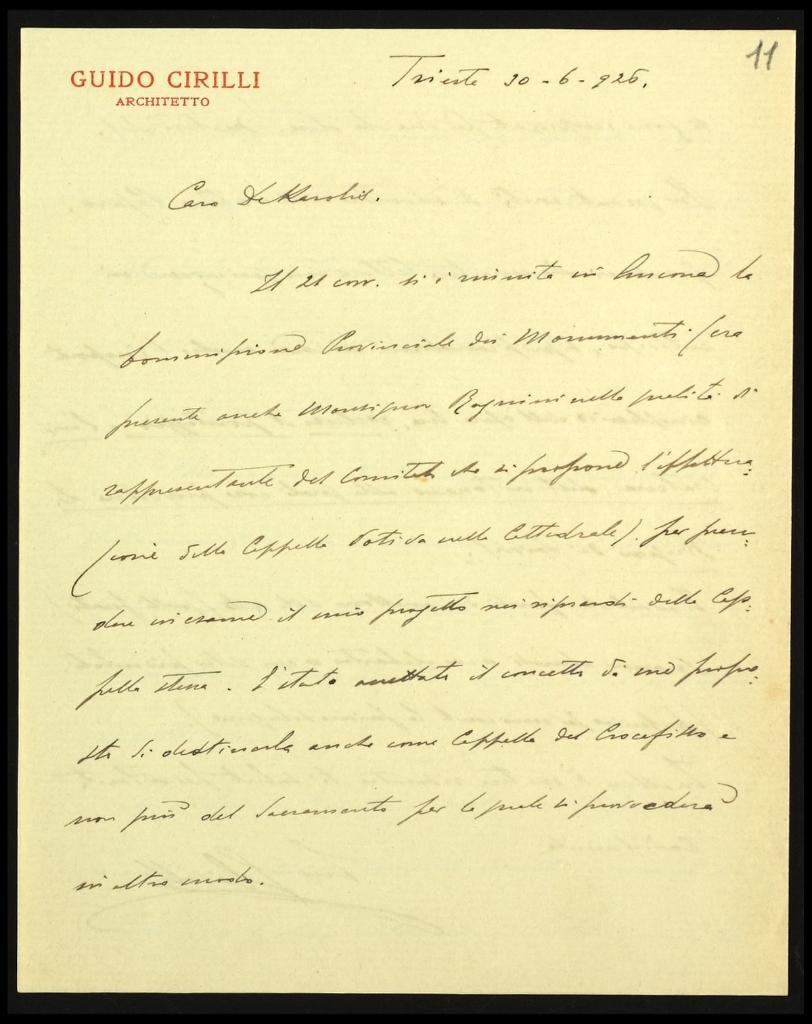 11
GUIDO CIRILLI
ARCHITETTO
Trieste 30-6-926.
Caro DeKarolis.
Il 21 corr. si è riunita in Ancona la
Commissione Provinciale dei Monumenti (era
presente anche Monsignor nella qualità di
rappresentante del Comitato che si propone l'effettua:
zione della Cappella Votiva nella Cattedrale) per pren:
dere in esame il mio progetto nei riguardi della Cap:
pella stessa. È stato accettato il concetto da me propo:
sto di destinarla anche come Cappella del Crocefisso e
non più del Sacramento per la quale si provvederà
in altro modo.